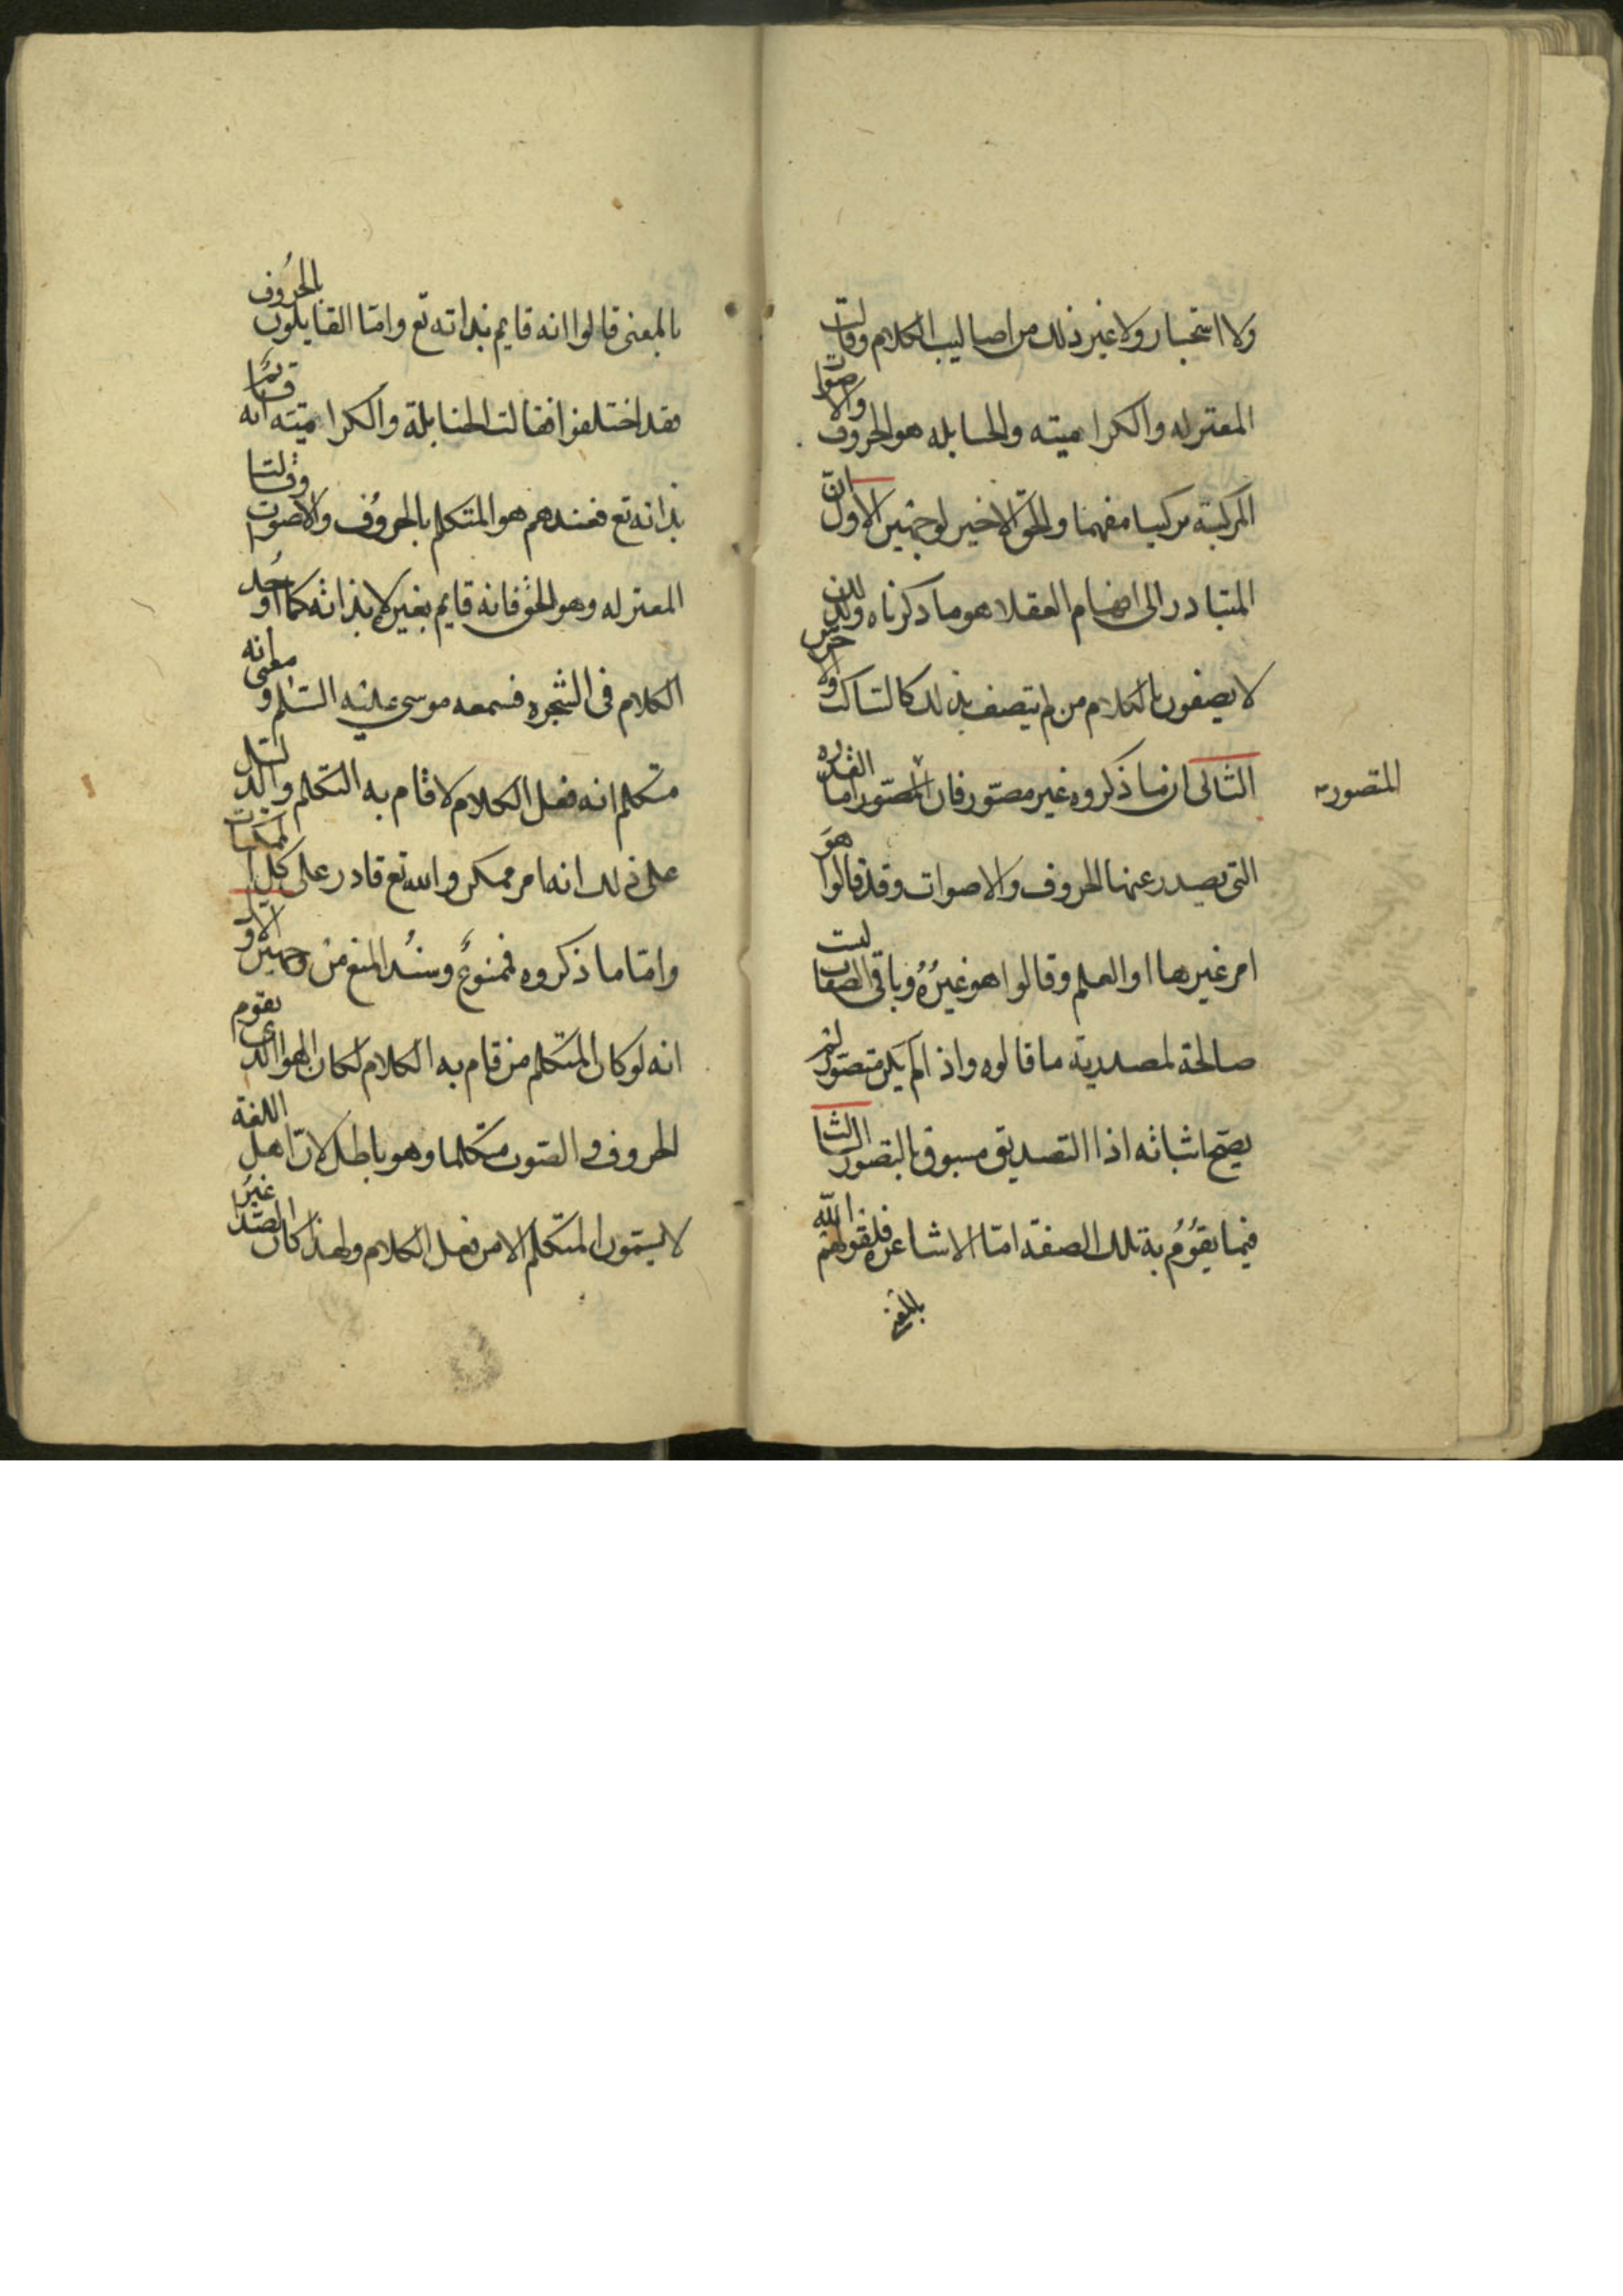 ولا استخبار ولا غير ذلك من اصاليب الكلام وقالت
المعتزله والكراميته والحنابله هو الحروف والاصوات
المركبة تركيبا مفهما والحق الاخير لوجهين الاول انّ
المتبادر الى افهام العقلا هو ما ذكرناه ولذلك
لا يصفون بالكلام من لم يتصف بذلك كالساكت والاخرس
الثانى ان ما ذكروه غير مصتور فان المصتور اما القدره
المتصور
التى يصدر عنها الحروف والاصوات وقد قالوا هو
امر غيرها او العلم وقالوا هو غيرُهُ وباقى الصفات ليست
صالحة لمصدرية ما قالوه واذا لم يكن متصورا لم
يصح اثباته اذا التصديق مسبوق بالتصور الثا
فيما يقوُمُ به تلك الصفة امّا الاشاعره فلقولهم
بالمعنى
بالمعنى قالوا انه قايم بذاته تع وامّا القايلون بالحرُوف
فقد اختلفوا فقالت الحنابلة والكراميته انه قائم
بذاته تع فعندهم هو المتكلم بالحروُف والاصوات وقالت
المعتزله وهو الحق فانه قايم بغيره لا بذاته كما اوجد
الكلام فى الشجره فسمعه موسى عليه السّلم ومعنى انه
متكلم انه فعل الكلام لا قام به التكلم والدليل
على ذلك انه امر ممكن والله تع قادر على كل الممكنات
وامّا ما ذكروه فممنوعٌ وسنُد المنع من وجهين الاوّ
انه لو كان المتكلم من قام به الكلام لكان الهوا الذى يقوم
الحروف و الصّوت متكلما وهو باطل لانّ اهل اللغة
لا يسمّون المتكلم الا من فعل الكلام ولهذا كان الصّدا غيرُ